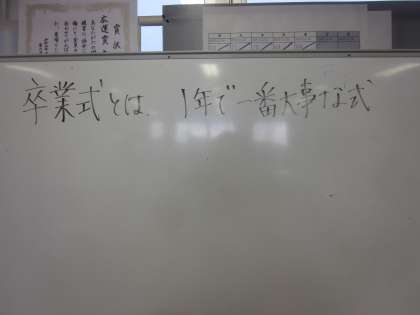 賞状
卒業式とは、1年で一番大事な式